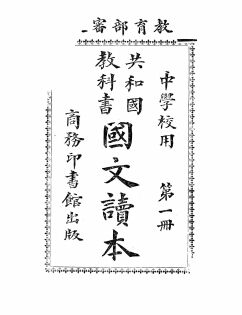 教育部審
中學校用
第一冊
共和國
教科書
國文讀本
商務印書館出版